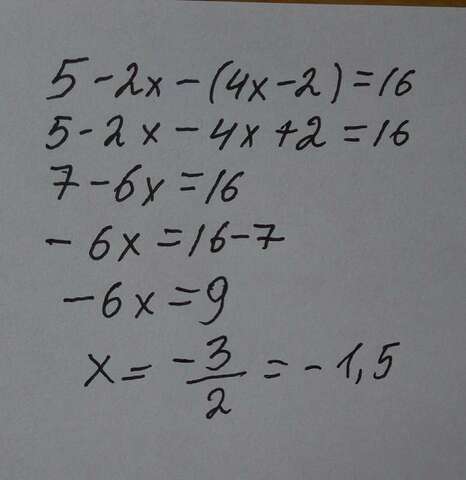 5 - 2x - (4x - 2) = 16
5 - 2x - 4x + 2 = 16
7 - 6x = 16
- 6x = 16 - 7
- 6x = 9
x = -3/2 = - 1,5